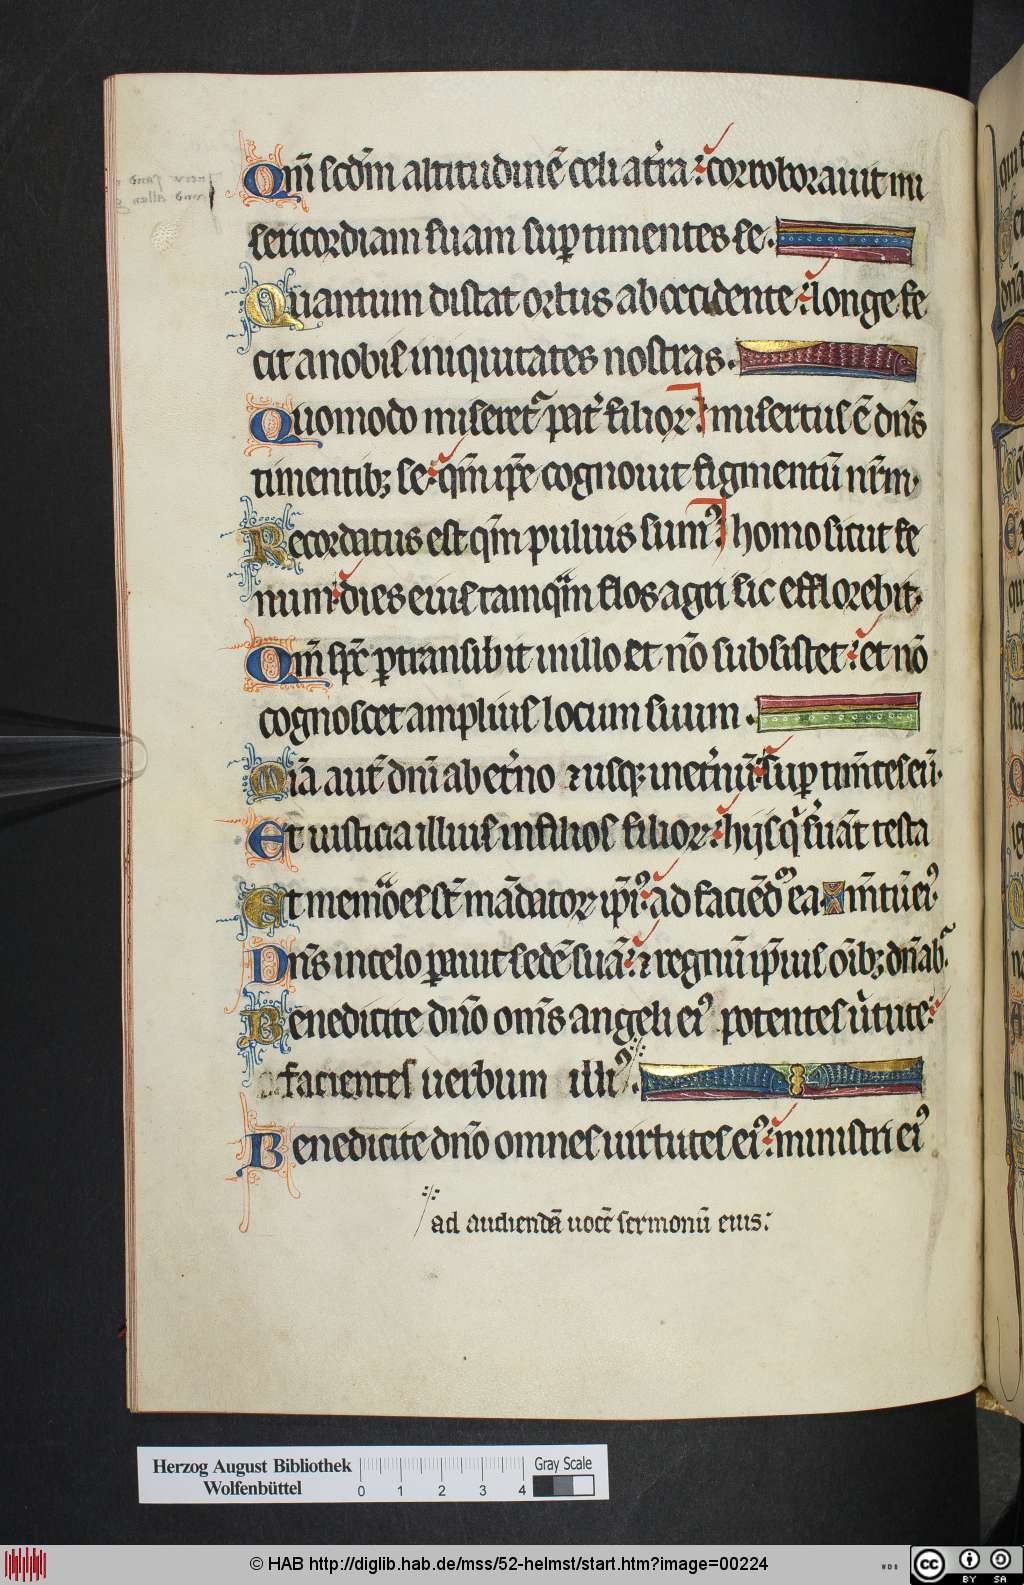 Qm̄ scdm̄ altitudinē celi at̾ra : corroborauit mi
sericordiam suam sup timentes se .
Quantum distat ortus ab occidente : longe fe
cit a nobis iniquitates nostras .
Quomodo miseret᷑ pat̾ filioꝝ : misertus ē dn̄s
timentibꝫ se : qm̄ ip̄e cognouit figmentū nr̄m .
Recordatus est qm̄ puluis sumꝰ : homo sicut fe
num : dies eius tamqͣm flos agri sic efflorebit .
Qm̄ sp̄c ꝑtransibit in illo et nō subsistet : et nō
cognoscet amplius locum suum .
Mīa aut̄ dnī ab et̾no ⁊ usqꝫ in et̾nū : suꝑ tim̄tes eū .
Et iusticia illius in filios filioꝝ : hijs q̇ seruāt testa
Et memoͬes st̄ mādatoꝝ ipīꝰ : ad faciēdꝰ ea . m̄tū eiꝰ
Dn̄s in celo ꝑauit sedē suā : ⁊ regnū ip̄ius oīb; dn̄ab᷑
Benedicite dn̄o om̄s angeli eiꝰ potentes u̾tute :
facientes uerbum illiꝰ .
Benedicite dn̄o omnes uirtutes eiꝰ : ministri eiꝰ
ad audiendā uocē sermonū eius :
Herzog August Bibliothek
Wolfenbüttel
0 1 2 3 4
Gray Scale
© HAB http://diglib.hab.de/mss/52-helmst/start.htm?image=00224
WDB
cc BY SA